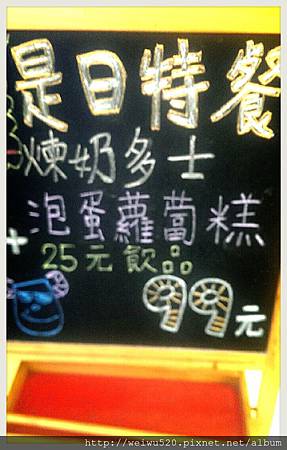 是日特餐
煉奶多士
泡蛋蘿蔔糕
+ 25元飲品
99元
http://weiwu520.pixnet.net/album